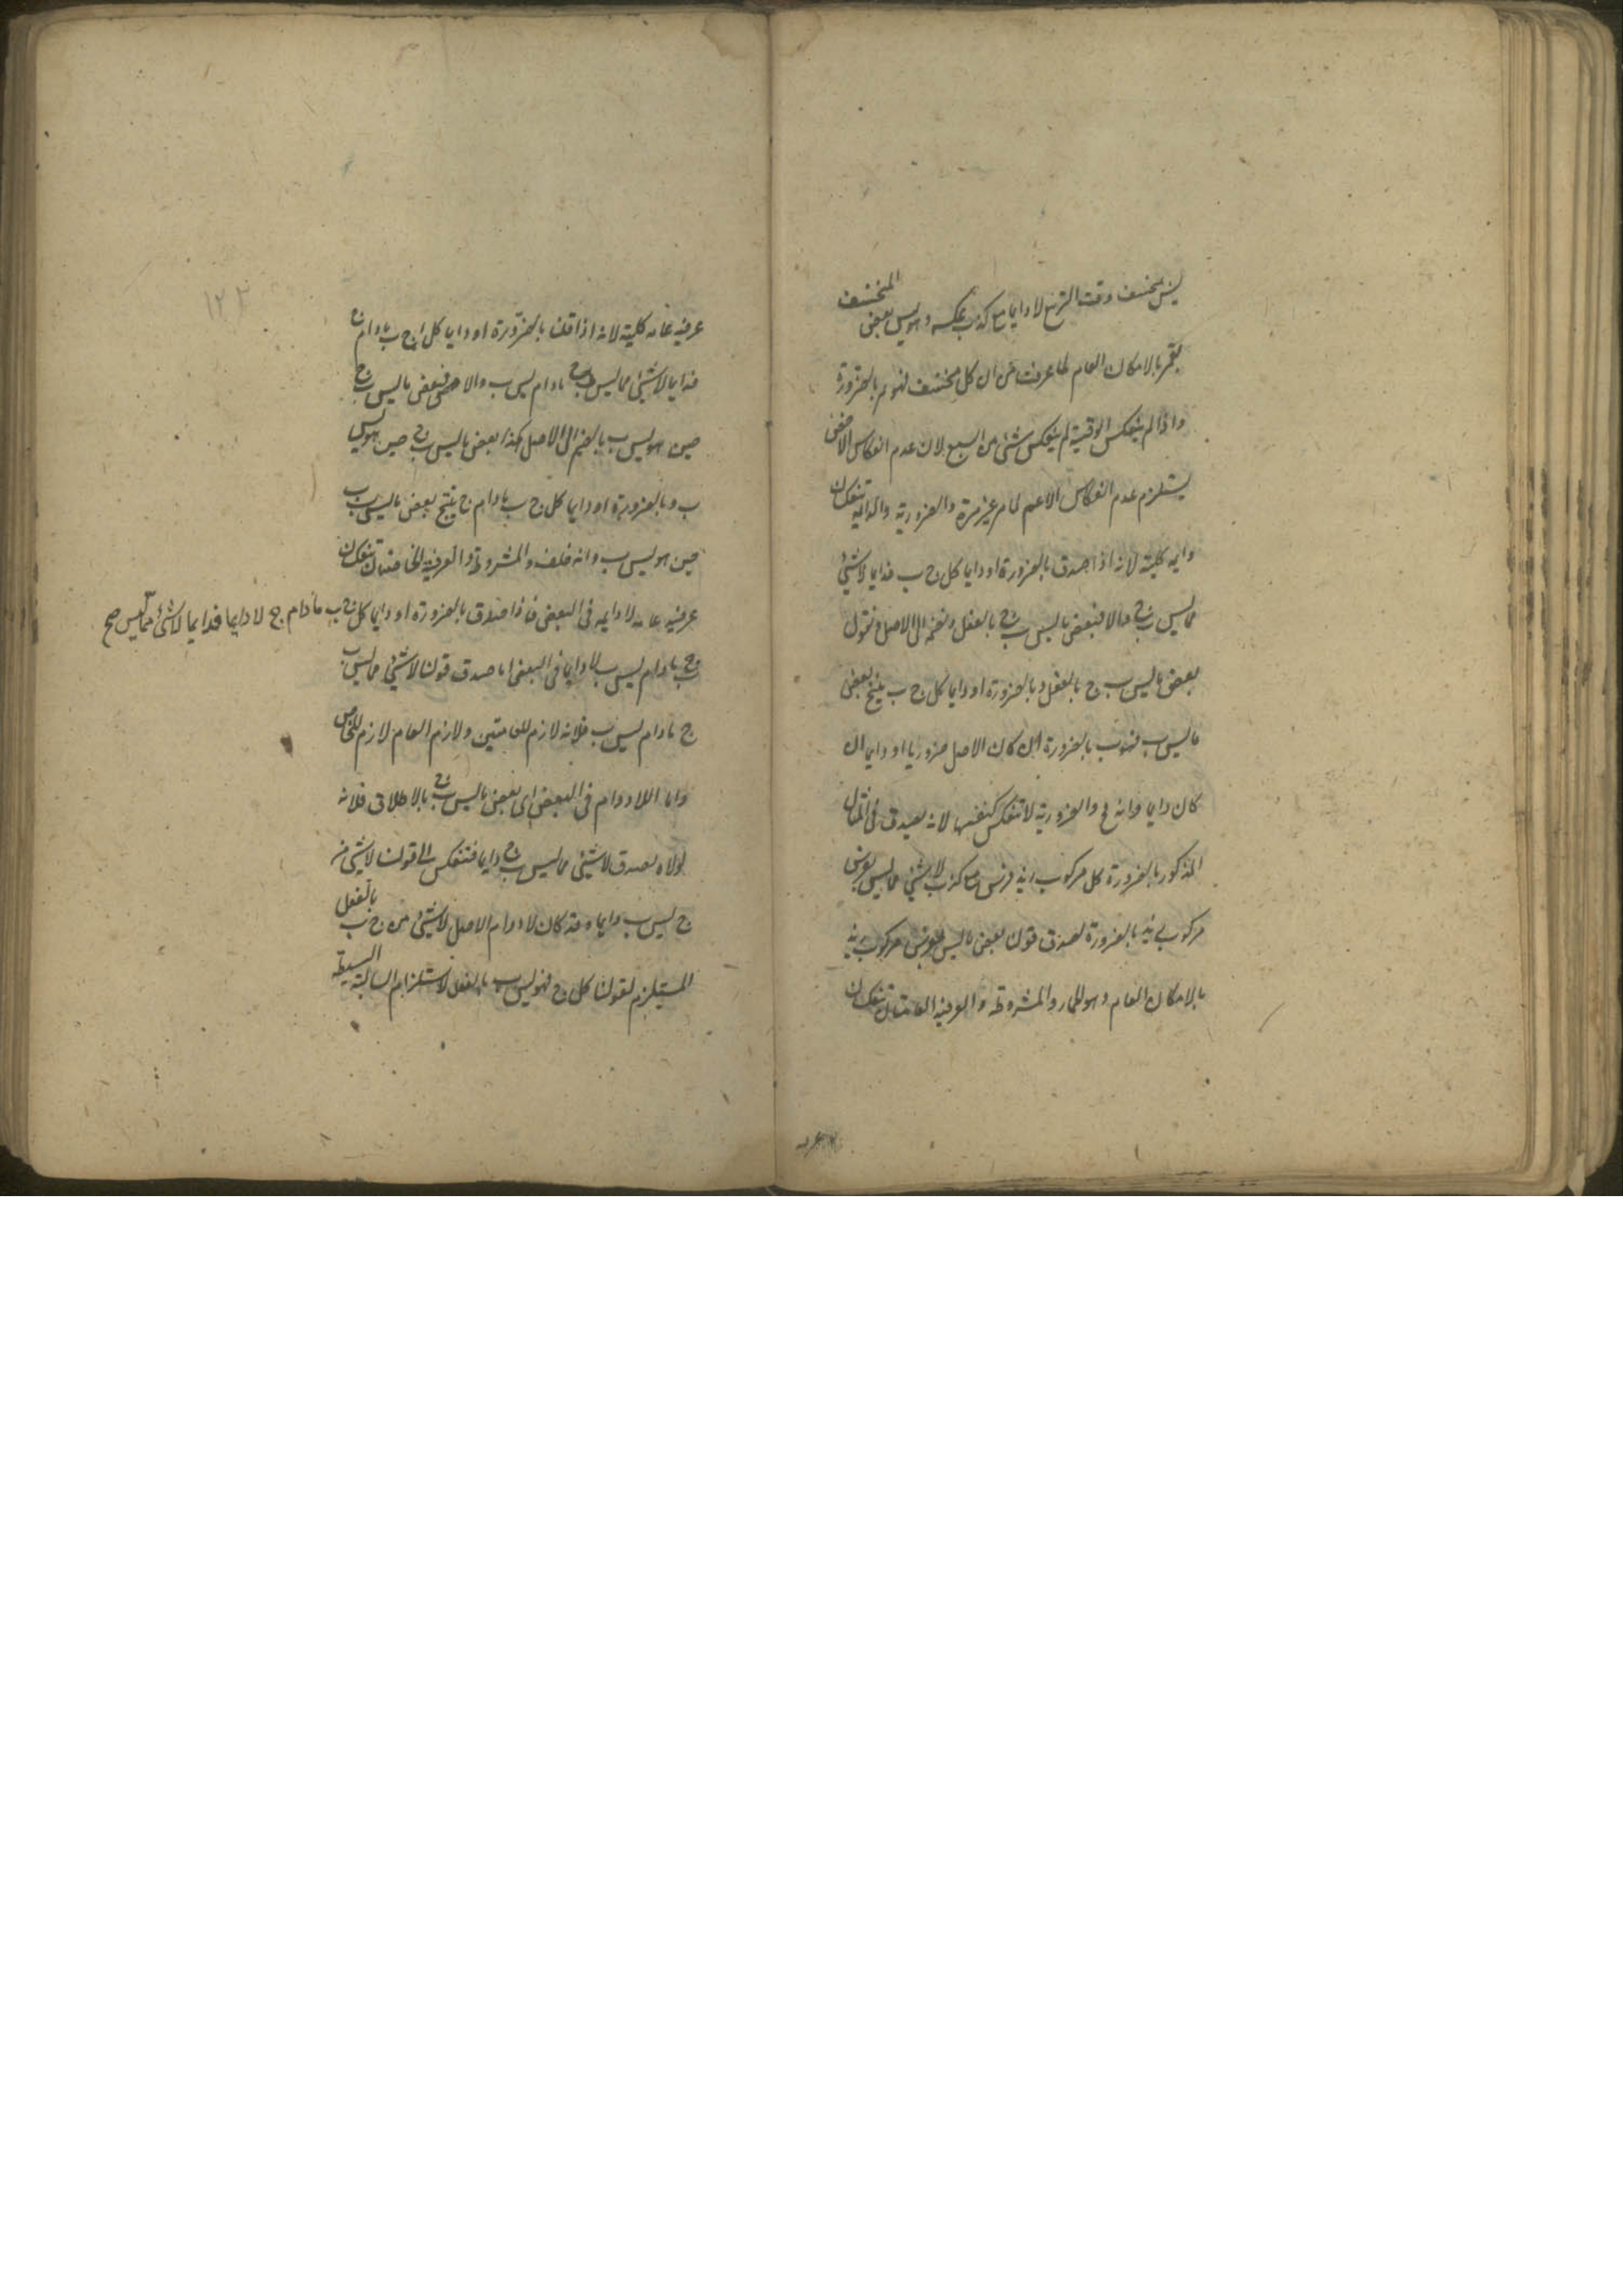 ليس بمنخسف وقت التربيع لا دايما مع كذب عكسه وهو ليس بعض المنخسف
بقمر بالامكان العام لما عرفت من ان كل منخسف فهو قمر بالضرورة
واذا لم ينعكس الوقتية لم ينعكس شئ من السبع لان عدم انعكاس الاخص
يستلزم عدم انعكاس الاعم لما مر غير مرة والضرورية والدايمة تنعكسان
دايمة كلية لانه اذا صدق بالضرورة او دايما كل ج ب فدايما لا شئ
مما ليس ب ج والا فبعض ما ليس ب ج بالفعل ونضمه الى الاصل ونقول
بعض ما ليس ب ج بالفعل وبالضرورة او دايما كل ج ب ينتج بعض
ما ليس ب فهو ب بالضرورة ان كان الاصل ضروريا او دايما ان
كان دايما وانه مح والضرورية لا تنعكس كنفسها لانه يصدق في المثال
المذكور بالضرورة كل مركوب زيد فرس مع كذب لا شئ مما ليس بفرس
مركوب زيد بالضرورة لصدق قولنا بعض ما ليس بفرس مركوب زيد
بالامكان العام وهو الحمار والمشروطة والعرفية العامتان تنعكسان
عرفية عامة كلية لانه اذا قلنا بالضرورة او دايما كل ج ب ما دام ج
فدايما لا شئ مما ليس ب ج ما دام ليس ب والا فبعض ما ليس ب ج
حين هو ليس ب بالضم الى الاصل هكذا بعض ما ليس ب ج حين هو ليس
ب وبالضرورة او دايما كل ج ب ما دام ج ينتج بعض ما ليس ب ب
حين هو ليس ب وانه خلف والمشروطة والعرفية الخاصتان تنعكسان
عرفية عامة لا دايمة في البعض فاذا صدق بالضرورة او دايما كل ج ب ما دام ج لا دايما فدايما لا شئ مما ليس صح
ب ج ما دام ليس ب لا دايما في البعض اما صدق قولنا لا شئ مما ليس ب
ج ما دام ليس ب فلانه لازم للعامتين ولازم العام لازم للخاص
واما اللا دوام في البعض اى بعض ما ليس ب ج بالاطلاق فلانه
لولاه لصدق لا شئ مما ليس ب ج دايما فتنعكس الى قولنا لا شئ من
ج ليس ب دايما وقد كان لا دوام الاصل لا شئ من ج ب بالفعل
المستلزم لقولنا كل ج فهو ليس ب بالفعل لاستلزام السالبة البسيطة